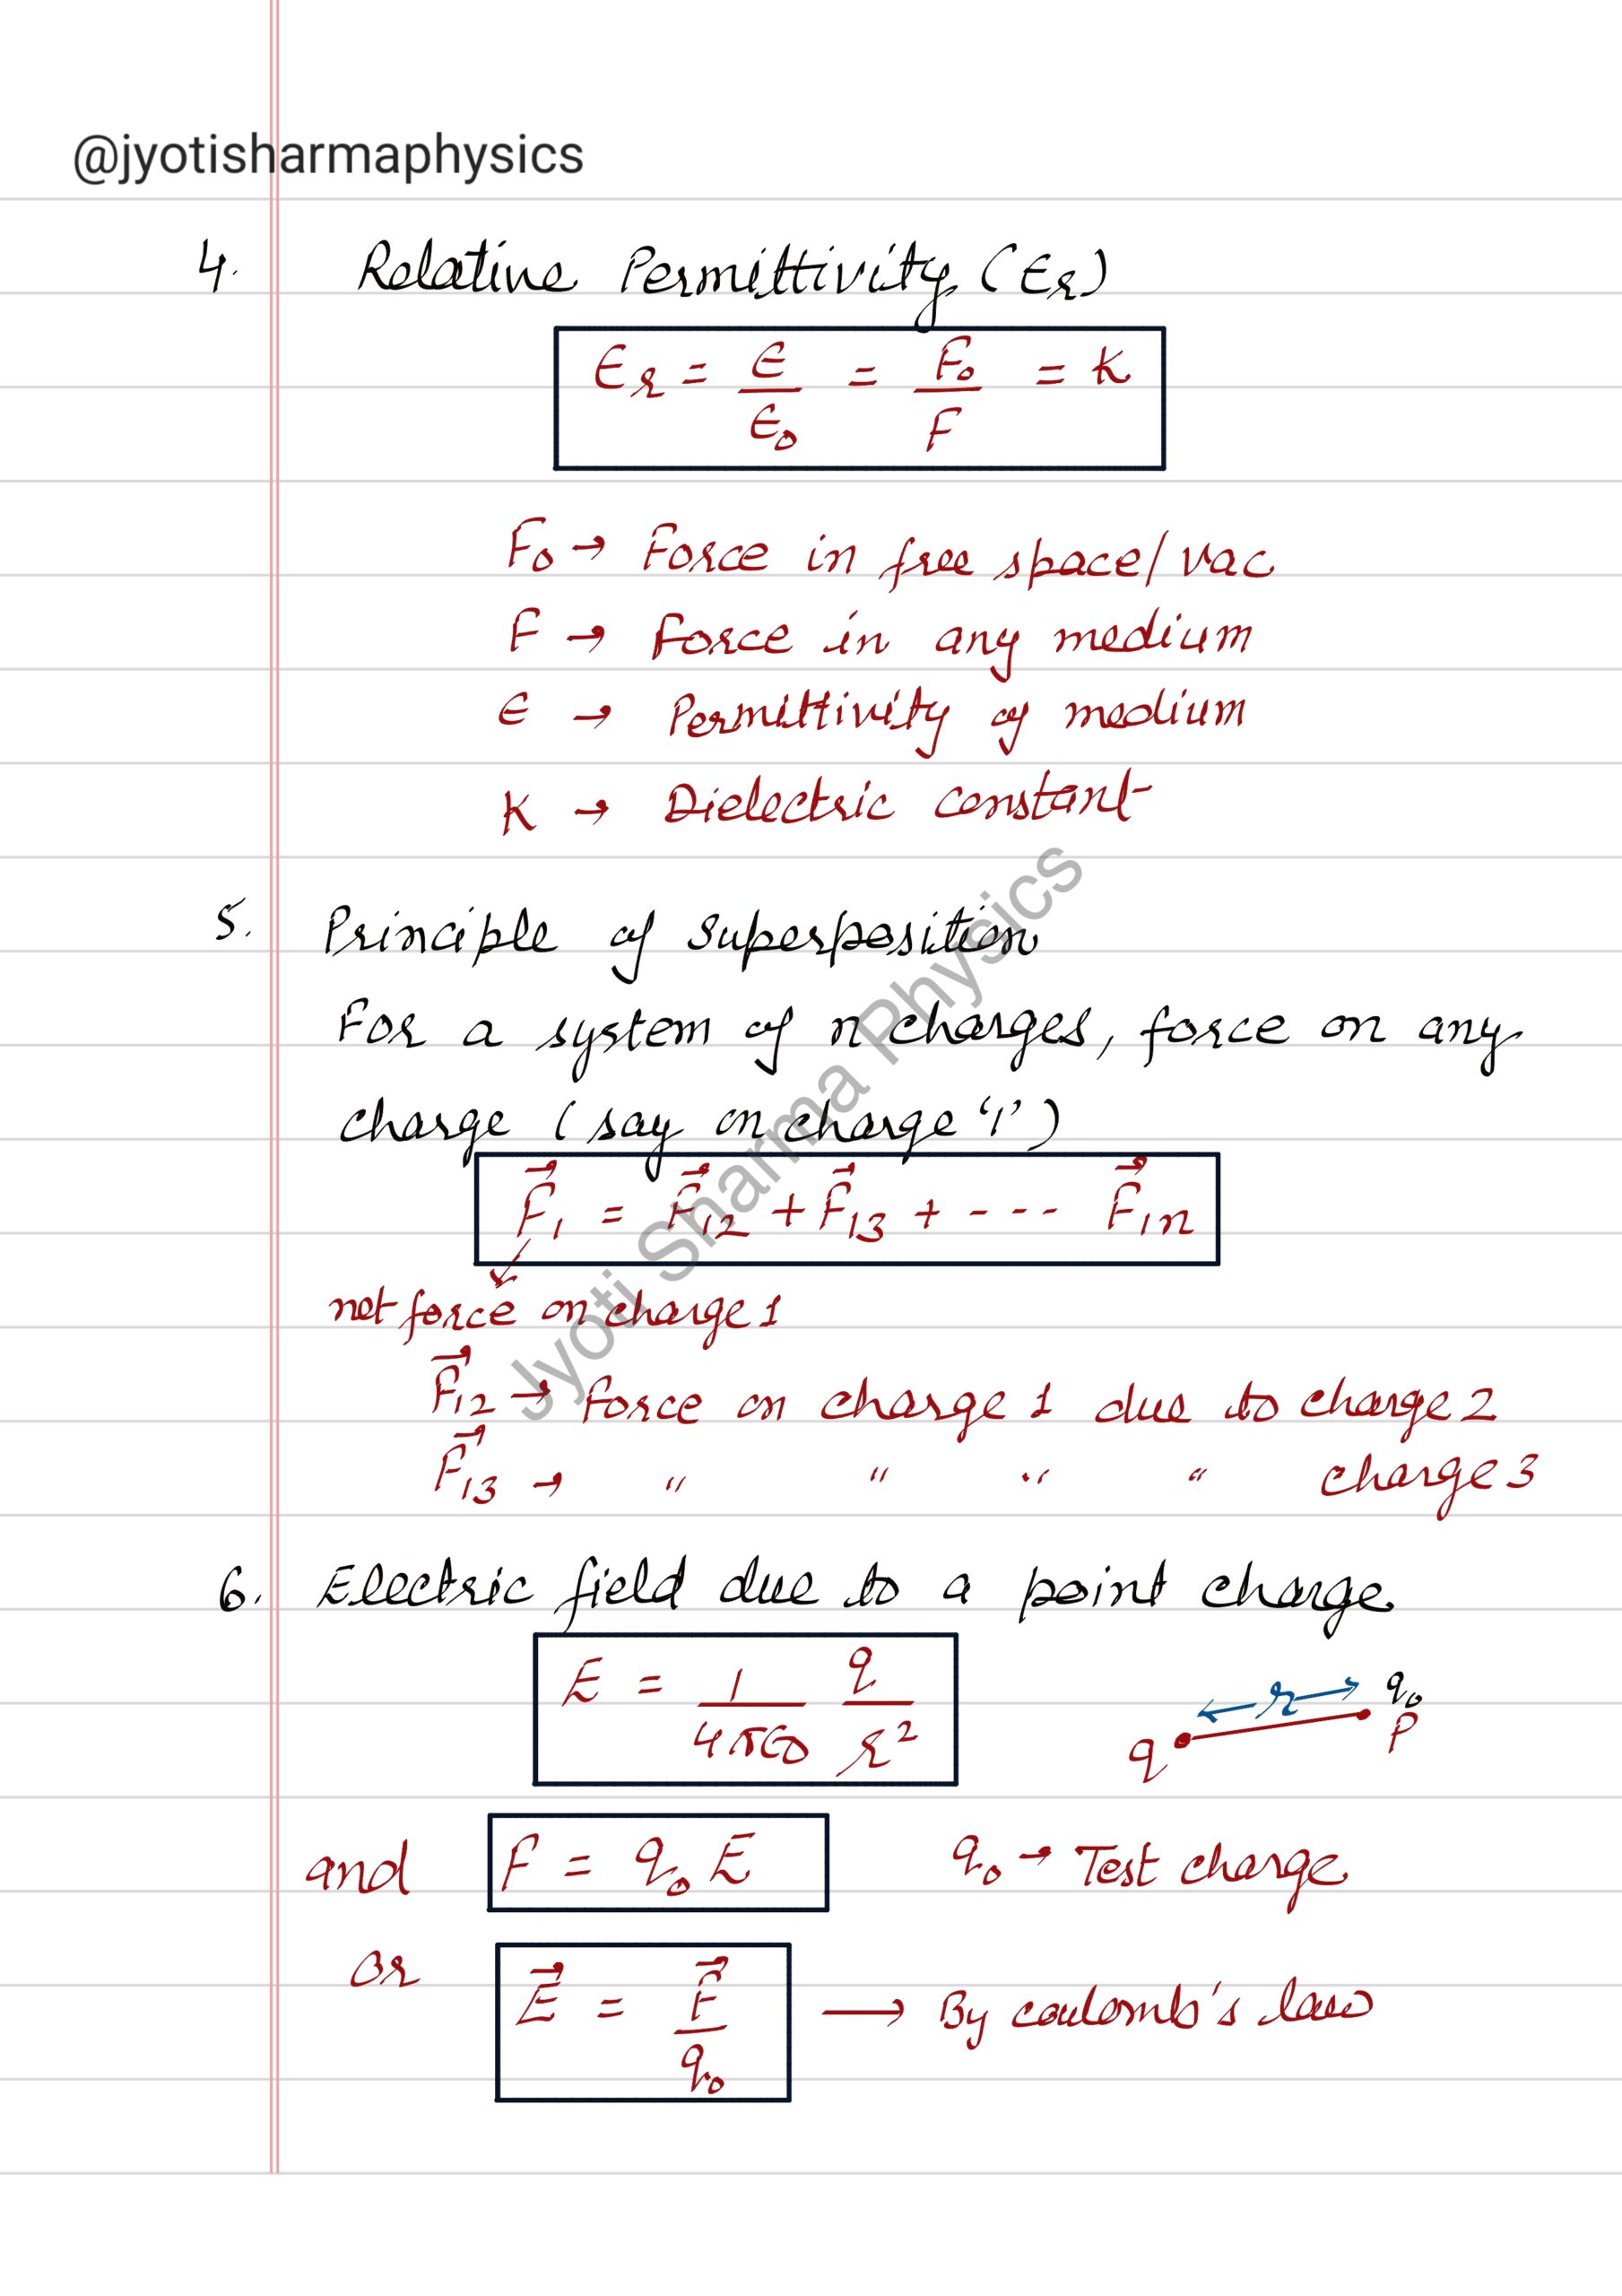 @jyotisharmaphysics
4. Relative Permittivity (εr)
εr = ε/ε₀ = F₀/F = K
F₀ → Force in free space/vac
F → Force in any medium
ε → Permittivity of medium
K → Dielectric constant
5. Principle of Superposition
For a system of n charges, force on any
charge (say on charge '1')
F⃗₁ = F⃗₁₂ + F⃗₁₃ + - - - F⃗₁n
net force on charge 1
F⃗₁₂ → Force on charge 1 due to charge 2
F⃗₁₃ → " " " " charge 3
6. Electric field due to a point charge
E = 1/4πε₀ q/r²
q r q₀ P
and F = q₀E q₀ → Test charge
or E⃗ = F⃗/q₀ → By coulomb's law
Jyoti Sharma Physics